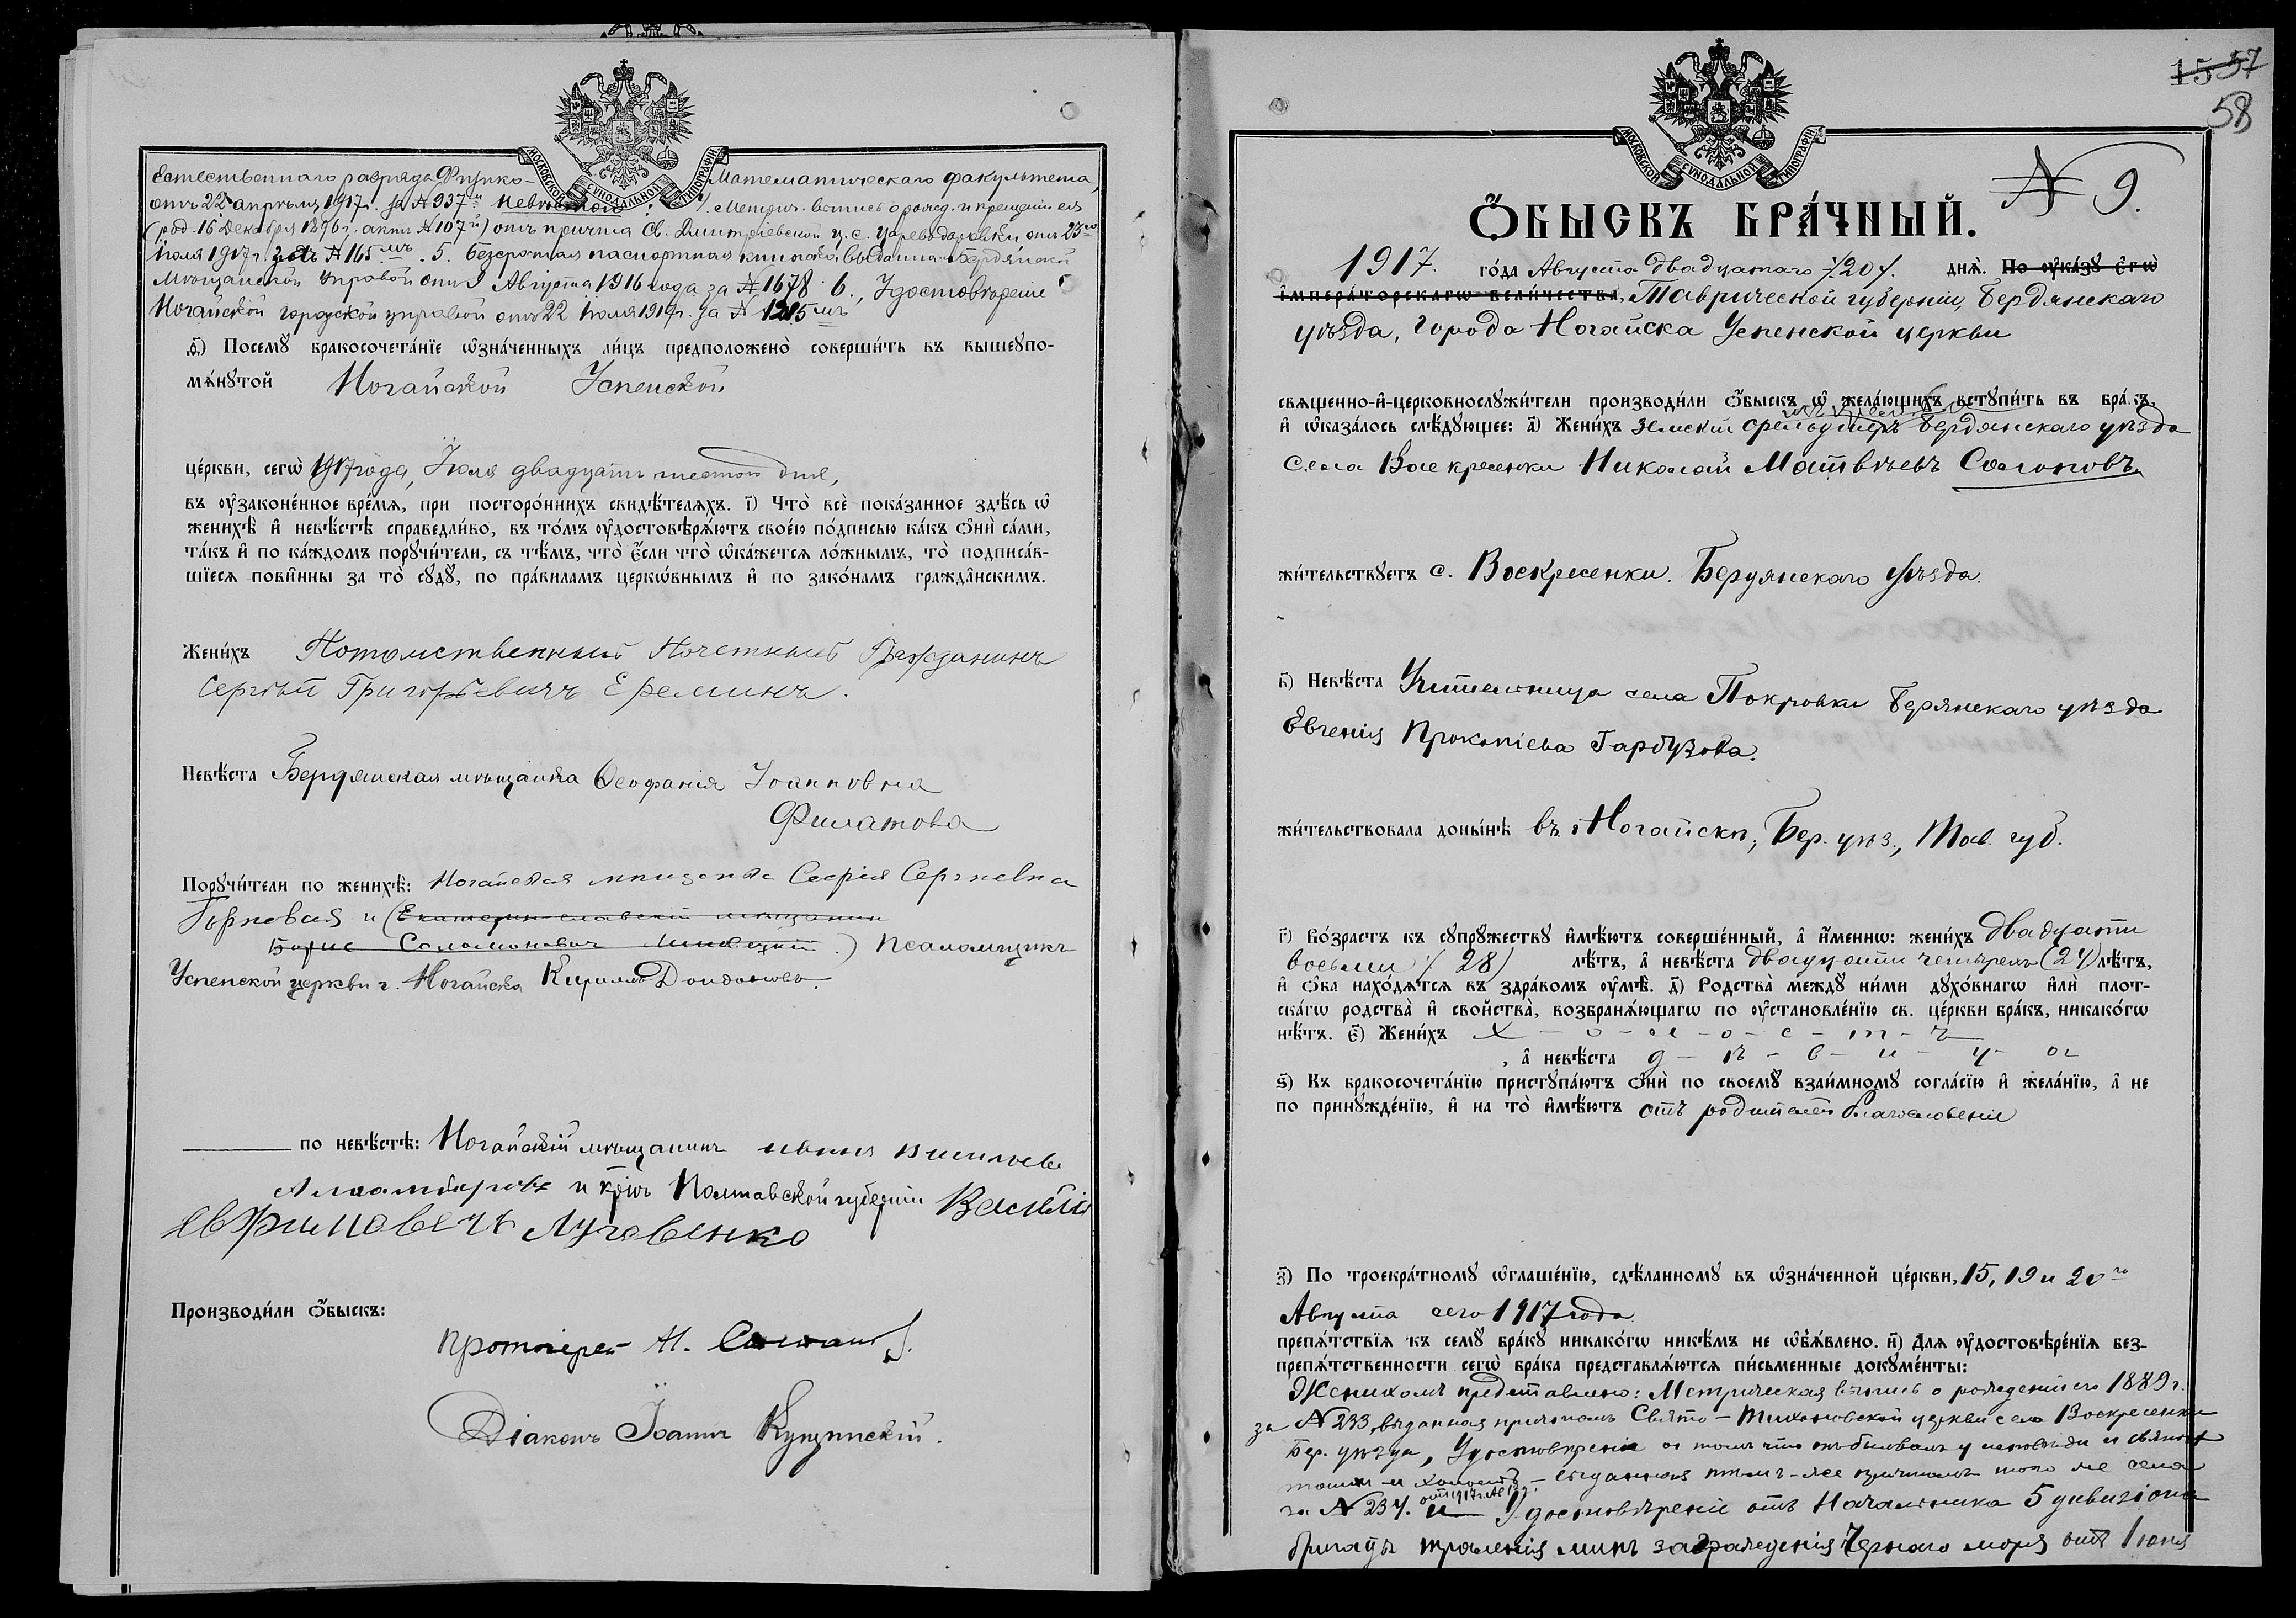 МОСКОВСКОЙ СѴНОДАЛЬНОЙ ТИПОГРАФІИ
Естественнаго разряда Физико-Математическаго факультета,
отъ 22 апрѣля 1917 г. за № 937 Невѣстой: 4. Метрич. выпись о рожд. и крещеніи ея
(род. 16 Декабря 1896 г. актъ № 107й) отъ причта Св. Димитріевской ц. с. Царевода­ровки отъ 23го
Іюля 1917 г. за № 165мъ. 5. безсрочная паспортная книжка, выданная Бердянской
Мѣщанской Управой отъ 9 Августа 1916 года за № 1678. 6., Удостовѣреніе
Ногайской городской управой отъ 22 Іюля 1917 г. за № 1215мъ
ѳ҃) Посемꙋ бракосочета́нїе ѡ҆зна́ченныхъ ли́цъ предположено̀ соверши́ть въ вышеꙋпо-
мѧ́нꙋтой Ногайской Успенской
це́ркви, сегѡ̀ 1917 года, Іюля двадцать шестой дня,
въ ᲂу҆законе́нное вре́мѧ, при посторо́ннихъ свидѣ́телѧхъ. і҃) Что̀ всѐ пока́занное здѣ́сь ѡ҆
женихѣ̀ и҆ невѣ́стѣ справедли́во, въ то́мъ ᲂу҆достовѣрѧ́ютъ свое́ю по́дписью ка́къ ѻ҆нѝ са́ми,
та́къ и҆ по ка́ждомъ порꙋчи́тели, съ тѣ́мъ, что̀ є҆́сли что̀ ѡ҆ка́жетсѧ ло́жнымъ, то̀ подписа́в-
шїесѧ пови́нны за то̀ сꙋдꙋ̀, по пра́виламъ церкѡ́внымъ и҆ по зако́намъ гражда́нскимъ.
Жени́хъ Потомственный Почетный Гражданинъ
Сергѣй Григорьевичъ Ереминъ.
Невѣ́ста Бердянская мѣщанка Ѳеофанія Іоанновна
Филатова
Порꙋчи́тели по женихѣ̀: Ногайская мѣщанка Софія Сергѣевна
и (Екатеринославскій мѣщанинъ
Борисъ Соломоновичъ) Псаломщикъ
Успенской церкви г. Ногайска Кириллъ Дондоковъ.
по невѣ́стѣ: Ногайскій мѣщанинъ
и кр‑нъ Полтавской губерніи Василій
Евфимовичъ Лугавенко
Производи́ли ѻ҆́быскъ:
Протоіерей Н.
Діаконъ Іоаннъ Купчинскій.
15 57
58
МОСКОВСКОЙ СѴНОДАЛЬНОЙ ТИПОГРАФІИ
№ 9.
Ѻ҆́БЫСКЪ БРА́ЧНЫЙ.
1917. го́да Августа двадцатаго /20/. днѧ̀. По ᲂу҆ка́зꙋ є҆гѡ̀
і҆мпера́торскагѡ вели́чества, Таврической губерніи, Бердянскаго
уѣзда, города Ногайска Успенской церкви
свѧщенно-и҆-церковнослꙋжи́тели производи́ли ѻ҆́быскъ ѡ҆ жела́ющихъ встꙋпи́ть въ бра́къ,
и҆ ѡ҆каза́лось слѣ́дꙋющее: а҃) Жени́хъ Земскій фельдшеръ Бердянскаго уѣзда
села Воскресенки Николай Матвѣевъ Солоповъ
жи́тельствꙋетъ с. Воскресенки. Бердянскаго уѣзда.
в҃) Невѣ́ста Учительница села Покровки Берянскаго уѣзда
Евгенія Прокопіева Гарбузова.
жи́тельствовала доны́нѣ въ Ногайскѣ, Бер. уѣз., Тав. губ.
г҃) Во́зрастъ къ сꙋпрꙋ́жествꙋ и҆мѣ́ютъ соверше́нный, а҆ и҆́меннѡ: жени́хъ двадцати
восьми /28/ лѣ́тъ, а҆ невѣ́ста двадцати четырехъ (24) лѣ́тъ,
и҆ ѻ҆́ба нахо́дѧтсѧ въ здра́вомъ ᲂу҆мѣ̀. д҃) Родства̀ междꙋ̀ ни́ми дꙋхо́внагѡ и҆лѝ плот-
ска́гѡ родства̀ и҆ сво́йства̀, возбранѧ́ющагѡ по ᲂу҆становле́нїю св. це́ркви бра́къ, никако́гѡ
нѣ́тъ. є҃) Жени́хъ х - о - л - о - с - т - ъ
, а҆ невѣ́ста д - ѣ - в - и - ц - а
ѕ҃) Къ бракосочета́нїю пристꙋпа́ютъ ѻ҆нѝ по своемꙋ̀ взаи́мномꙋ согла́сїю и҆ жела́нїю, а҆ не
по принꙋжде́нїю, и҆ на то̀ и҆мѣ́ютъ отъ родителей благословеніе
з҃) По троекра́тномꙋ ѡ҆глаше́нїю, сдѣ́ланномꙋ въ ѡ҆зна́ченной це́ркви, 15, 19 и 20го
Августа сего 1917 года
препѧ́тствїѧ къ семꙋ̀ бра́кꙋ никако́гѡ никѣ́мъ не ѡ҆бъѧ́влено. и҃) Для ᲂу҆достовѣре́нїѧ без-
препѧ́тственности сегѡ̀ бра́ка представлѧ́ютсѧ пи́сьменные докꙋме́нты:
Женихомъ представлено: Метрическая выпись о рожденіи его 1889 г.
за № 233, выданная причтомъ Свято-Тихоновской церкви села Воскресенки
Бер. уѣзда, Удостовѣреніе о томъ что онъ бывалъ у исповѣди и святого
и холостъ - выданная тѣмъ-же причтомъ того же села
за № 234. и Удостовѣреніе отъ Начальника 5 дивизіона
бригады траленія минъ загражденія Чернаго моря отъ Іюня